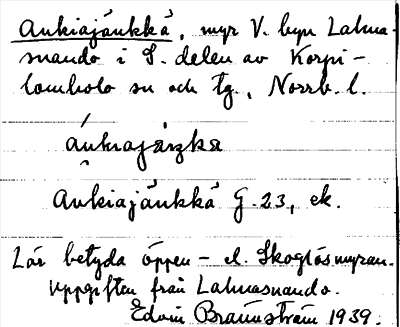 Aukiajånkkå, myr V. byn Lahna-
suando i S. delen av Korpi-
lombolo sn och tg., Norrb. l.
Aukiajånkkå G.23, ek.
Lär betyda öppen- el. Skoglösmyran.
Uppgiften från Lahnasuando.
Edvin Brännström 1939.